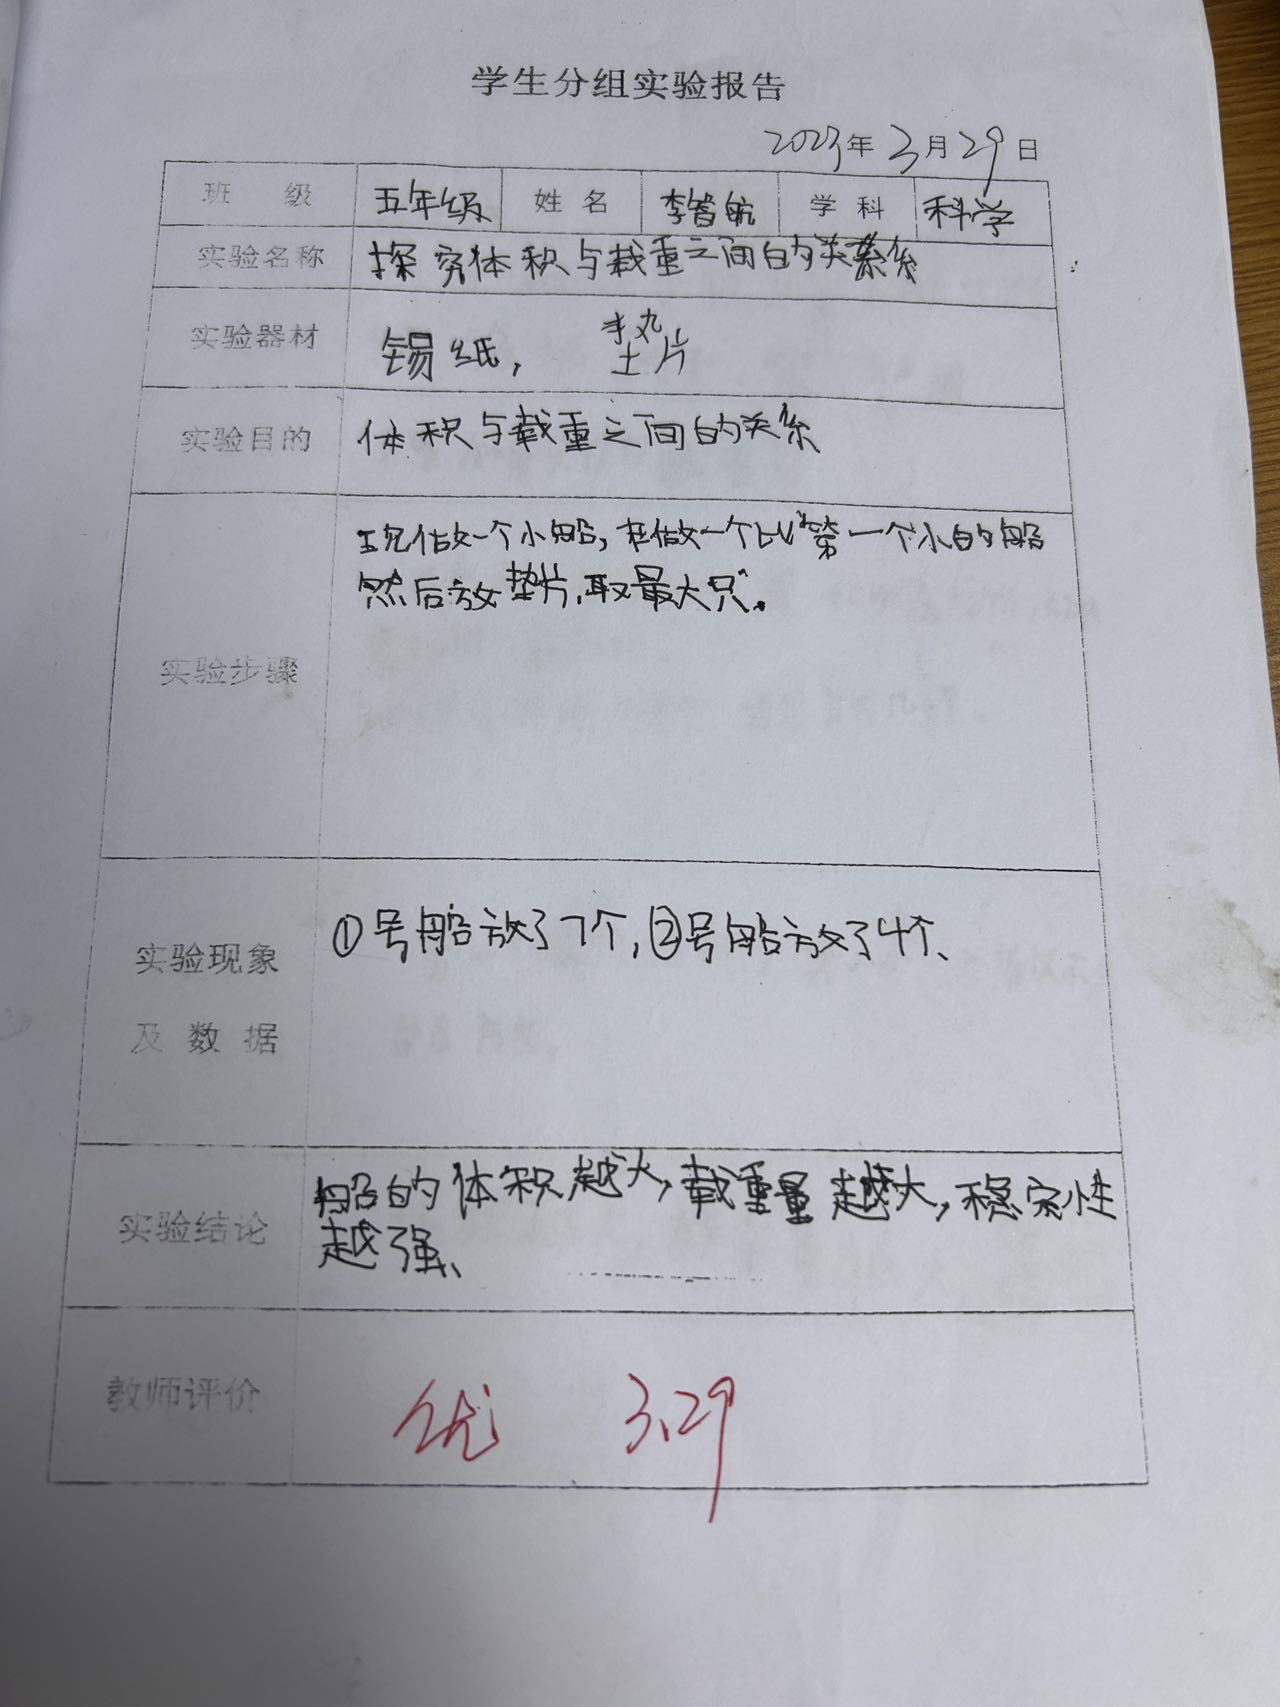 学生分组实验报告
2023年3月29日
班 级 五年级 姓名 李智航 学科 科学
实验名称 探究体积与载重之间的关系
实验器材 锡纸, 垫片
实验目的 体积与载重之间的关系
做一个小船,在做一个比第一个小的船
然后放垫片,取最大只。
实验步骤
①号船放了7个,②号船放了4个、
实验现象
及数据
船的体积越大,载重量越大,稳定性
实验结论
越强、
教师评价 优 3.29